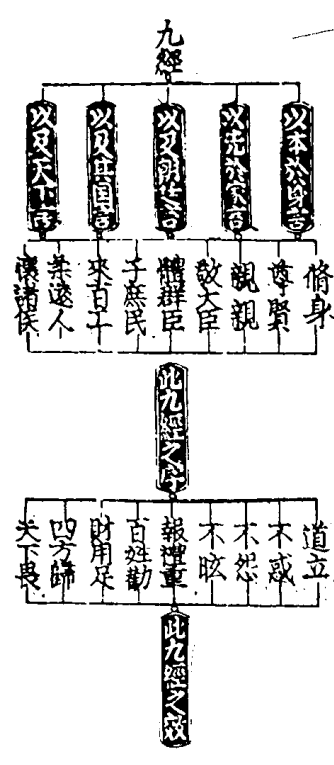 九經
以本於身言
以先於家言
以及朝廷言
以及其国言
以及天下言
脩身
尊賢
親親
敬大臣
體群臣
子庶民
來百工
柔遠人
懷諸侯
此九經之序
道立
不惑
不怨
不眩
報禮重
百姓勸
財用足
四方歸
天下畏
此九經之效